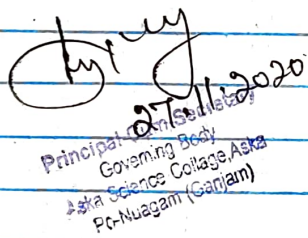 27.11.2020
Principal Cum Secretary
Governing Body
Aska Science Collage, Aska
Po-Nuagam (Ganjam)